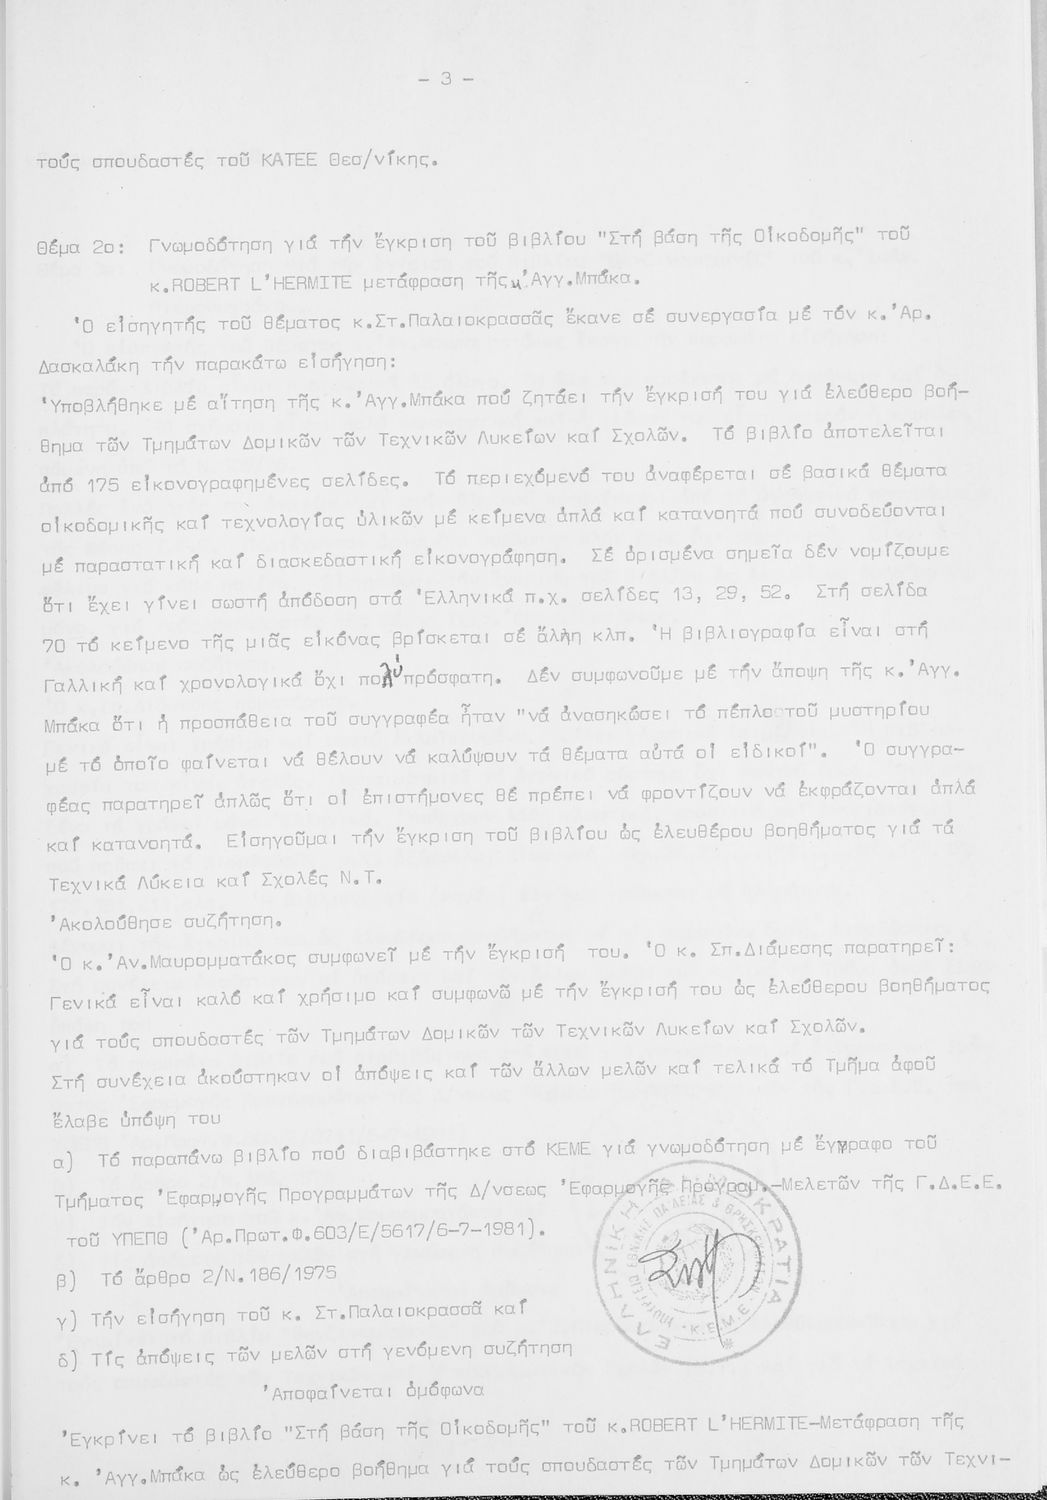 - 3 -
τούς σπουδαστές τοῦ ΚΑΤΕΕ Θεσ/νίκης.
Θέμα 2ο: Γνωμοδότηση γιά τήν ἔγκριση τοῦ βιβλίου "Στή βάση τῆς Οἰκοδομῆς" τοῦ
κ.ROBERT L'HERMITE μετάφραση τῆς κ.'Αγγ.Μπάκα.
'Ο εἰσηγητής τοῦ θέματος κ.Στ.Παλαιοκρασσᾶς ἔκανε σέ συνεργασία μέ τόν κ.'Αρ.
Δασκαλάκη τήν παρακάτω εἰσήγηση:
'Υποβλήθηκε μέ αἴτηση τῆς κ.'Αγγ.Μπάκα πού ζητάει τήν ἔγκρισή του γιά ἐλεύθερο βοή-
θημα τῶν Τμημάτων Δομικῶν τῶν Τεχνικῶν Λυκείων καί Σχολῶν. Τό βιβλίο ἀποτελεῖται
ἀπό 175 εἰκονογραφημένες σελίδες. Τό περιεχόμενό του ἀναφέρεται σέ βασικά θέματα
οἰκοδομικῆς καί τεχνολογίας ὑλικῶν μέ κείμενα ἁπλά καί κατανοητά πού συνοδεύονται
μέ παραστατική καί διασκεδαστική εἰκονογράφηση. Σέ ὁρισμένα σημεῖα δέν νομίζουμε
ὅτι ἔχει γίνει σωστή ἀπόδοση στά 'Ελληνικά π.χ. σελίδες 13, 29, 52. Στή σελίδα
70 τό κείμενο τῆς μιᾶς εἰκόνας βρίσκεται σέ ἄλλη κλπ. 'Η βιβλιογραφία εἶναι στή
Γαλλική καί χρονολογικά ὄχι πολύ πρόσφατη. Δέν συμφωνοῦμε μέ τήν ἄποψη τῆς κ.'Αγγ.
Μπάκα ὅτι ἡ προσπάθεια τοῦ συγγραφέα ἦταν "νά ἀνασηκώσει τό πέπλο τοῦ μυστηρίου
μέ τό ὁποῖο φαίνεται νά θέλουν νά καλύψουν τά θέματα αὐτά οἱ εἰδικοί". 'Ο συγγρα-
φέας παρατηρεῖ ἁπλῶς ὅτι οἱ ἐπιστήμονες θέ πρέπει νά φροντίζουν νά ἐκφράζονται ἁπλά
καί κατανοητά. Εἰσηγοῦμαι τήν ἔγκριση τοῦ βιβλίου ὡς ἐλευθέρου βοηθήματος γιά τά
Τεχνικά Λύκεια καί Σχολές Ν.Τ.
'Ακολούθησε συζήτηση.
'Ο κ.'Αν.Μαυρομματάκος συμφωνεῖ μέ τήν ἔγκρισή του. 'Ο κ. Σπ.Διάμεσης παρατηρεῖ:
Γενικά εἶναι καλό καί χρήσιμο καί συμφωνῶ μέ τήν ἔγκρισή του ὡς ἐλεύθερου βοηθήματος
γιά τούς σπουδαστές τῶν Τμημάτων Δομικῶν τῶν Τεχνικῶν Λυκείων καί Σχολῶν.
Στή συνέχεια ἀκούστηκαν οἱ ἀπόψεις καί τῶν ἄλλων μελῶν καί τελικά τό Τμῆμα ἀφοῦ
ἔλαβε ὑπόψη του
α) Τό παραπάνω βιβλίο πού διαβιβάστηκε στό ΚΕΜΕ γιά γνωμοδότηση μέ ἔγγραφο τοῦ
Τμήματος 'Εφαρμογῆς Προγραμμάτων τῆς Δ/νσεως 'Εφαρμογῆς Προγραμ.-Μελετῶν τῆς Γ.Δ.Ε.Ε.
τοῦ ΥΠΕΠΘ ('Αρ.Πρωτ.Φ.603/Ε/5617/6-7-1981).
β) Τό ἄρθρο 2/Ν.186/1975
γ) Τήν εἰσήγηση τοῦ κ. Στ.Παλαιοκρασσᾶ καί
δ) Τίς ἀπόψεις τῶν μελῶν στή γενόμενη συζήτηση
'Αποφαίνεται ὁμόφωνα
'Εγκρίνει τό βιβλίο "Στή βάση τῆς Οἰκοδομῆς" τοῦ κ.ROBERT L'HERMITE-Μετάφραση τῆς
κ. 'Αγγ.Μπάκα ὡς ἐλεύθερο βοήθημα γιά τούς σπουδαστές τῶν Τμημάτων Δομικῶν τῶν Τεχνι-
ΕΛΛΗΝΙΚΗ ΔΗΜΟΚΡΑΤΙΑ
Κ.Ε.Μ.Ε.